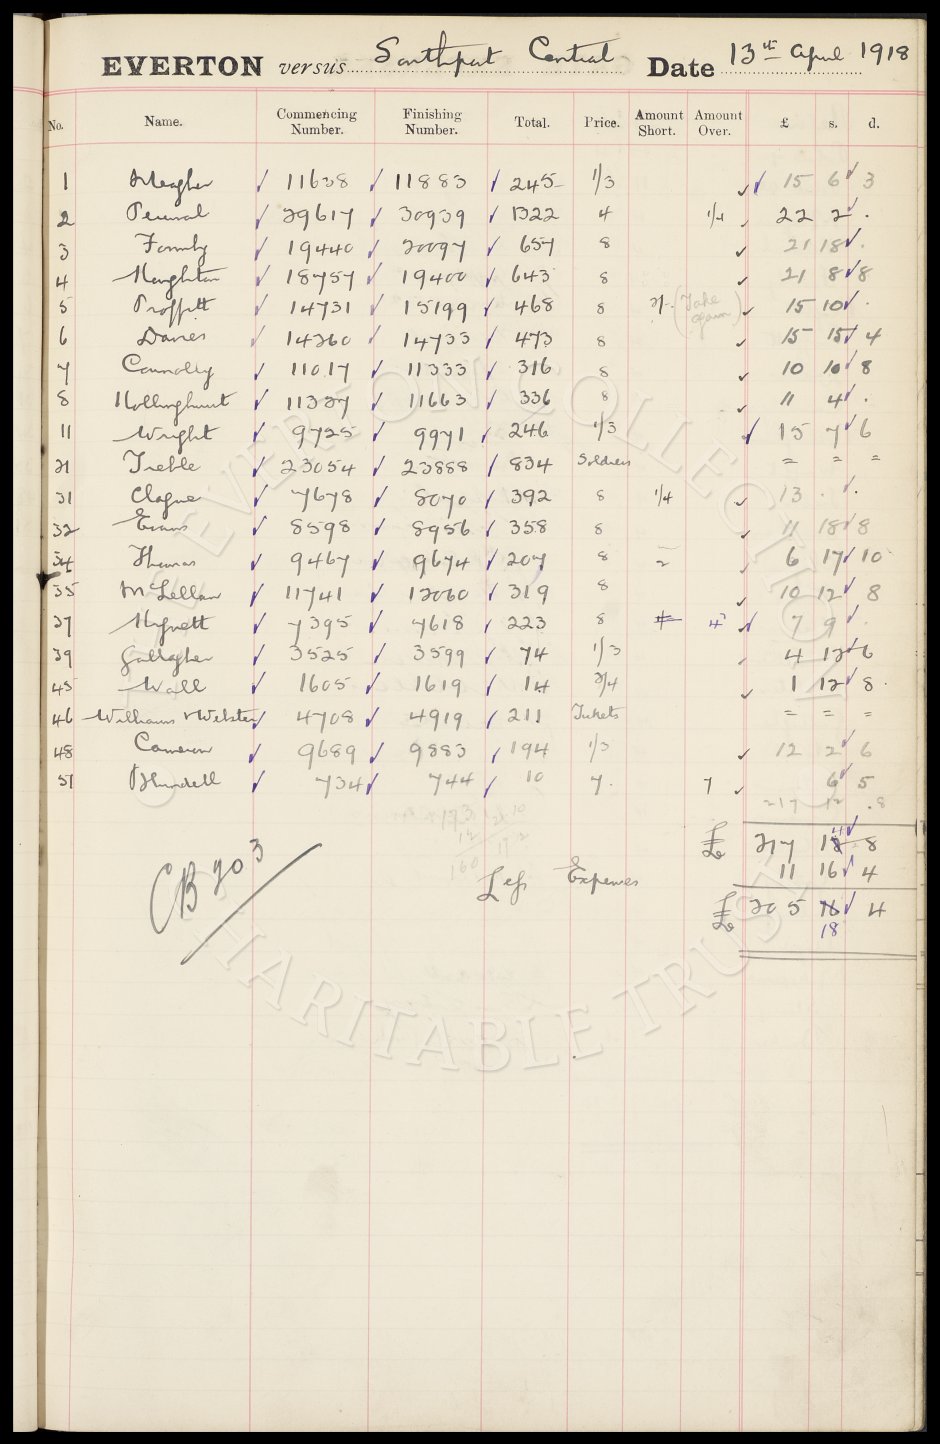 EVERTON versus Southport Central Date 13th April 1918
No. Name. Commencing Number. Finishing Number. Total. Price. Amount Short. Amount Over. £ s. d.
1 Meagher 11638 11883 245 1/3 15 6 3
2 Percival 29617 30939 1322 4 1/4 22 2 .
3 Formby 19440 20097 657 8 21 18 .
4 Houghton 18757 19400 643 8 21 8 8
5 Proffitt 14731 15199 468 8 2/- (Take Again) 15 10 .
6 Davies 14260 14733 473 8 15 15 4
7 Connolly 11017 11333 316 8 10 10 8
8 Hollinghurst 11327 11663 336 8 11 4 .
11 Wright 9725 9971 246 1/3 15 7 6
21 Treble 23054 23888 834 Soldiers = = =
31 Clague 7678 8070 392 8 1/4 13 . .
32 Evans 8598 8956 358 8 11 18 8
34 Thomas 9467 9674 207 8 2 6 17 10
35 McLellan 11741 12060 319 8 10 12 8
37 Hignett 7395 7618 223 8 4 4 7 9 .
39 Gallagher 3525 3599 74 1/3 4 12 6
45 Wall 1605 1619 14 2/4 1 12 8
46 Williams & Webster 4708 4919 211 Tickets = = =
48 Cameron 9689 9883 194 1/3 12 2 6
51 Blundell 734 744 10 7. 7 6 5
217 12 .8
£ 217 14 8
11 16 4
Less Expenses
£ 205 16 4
18
CB 703
EVERTON COLLECTION
CHARITABLE TRUST